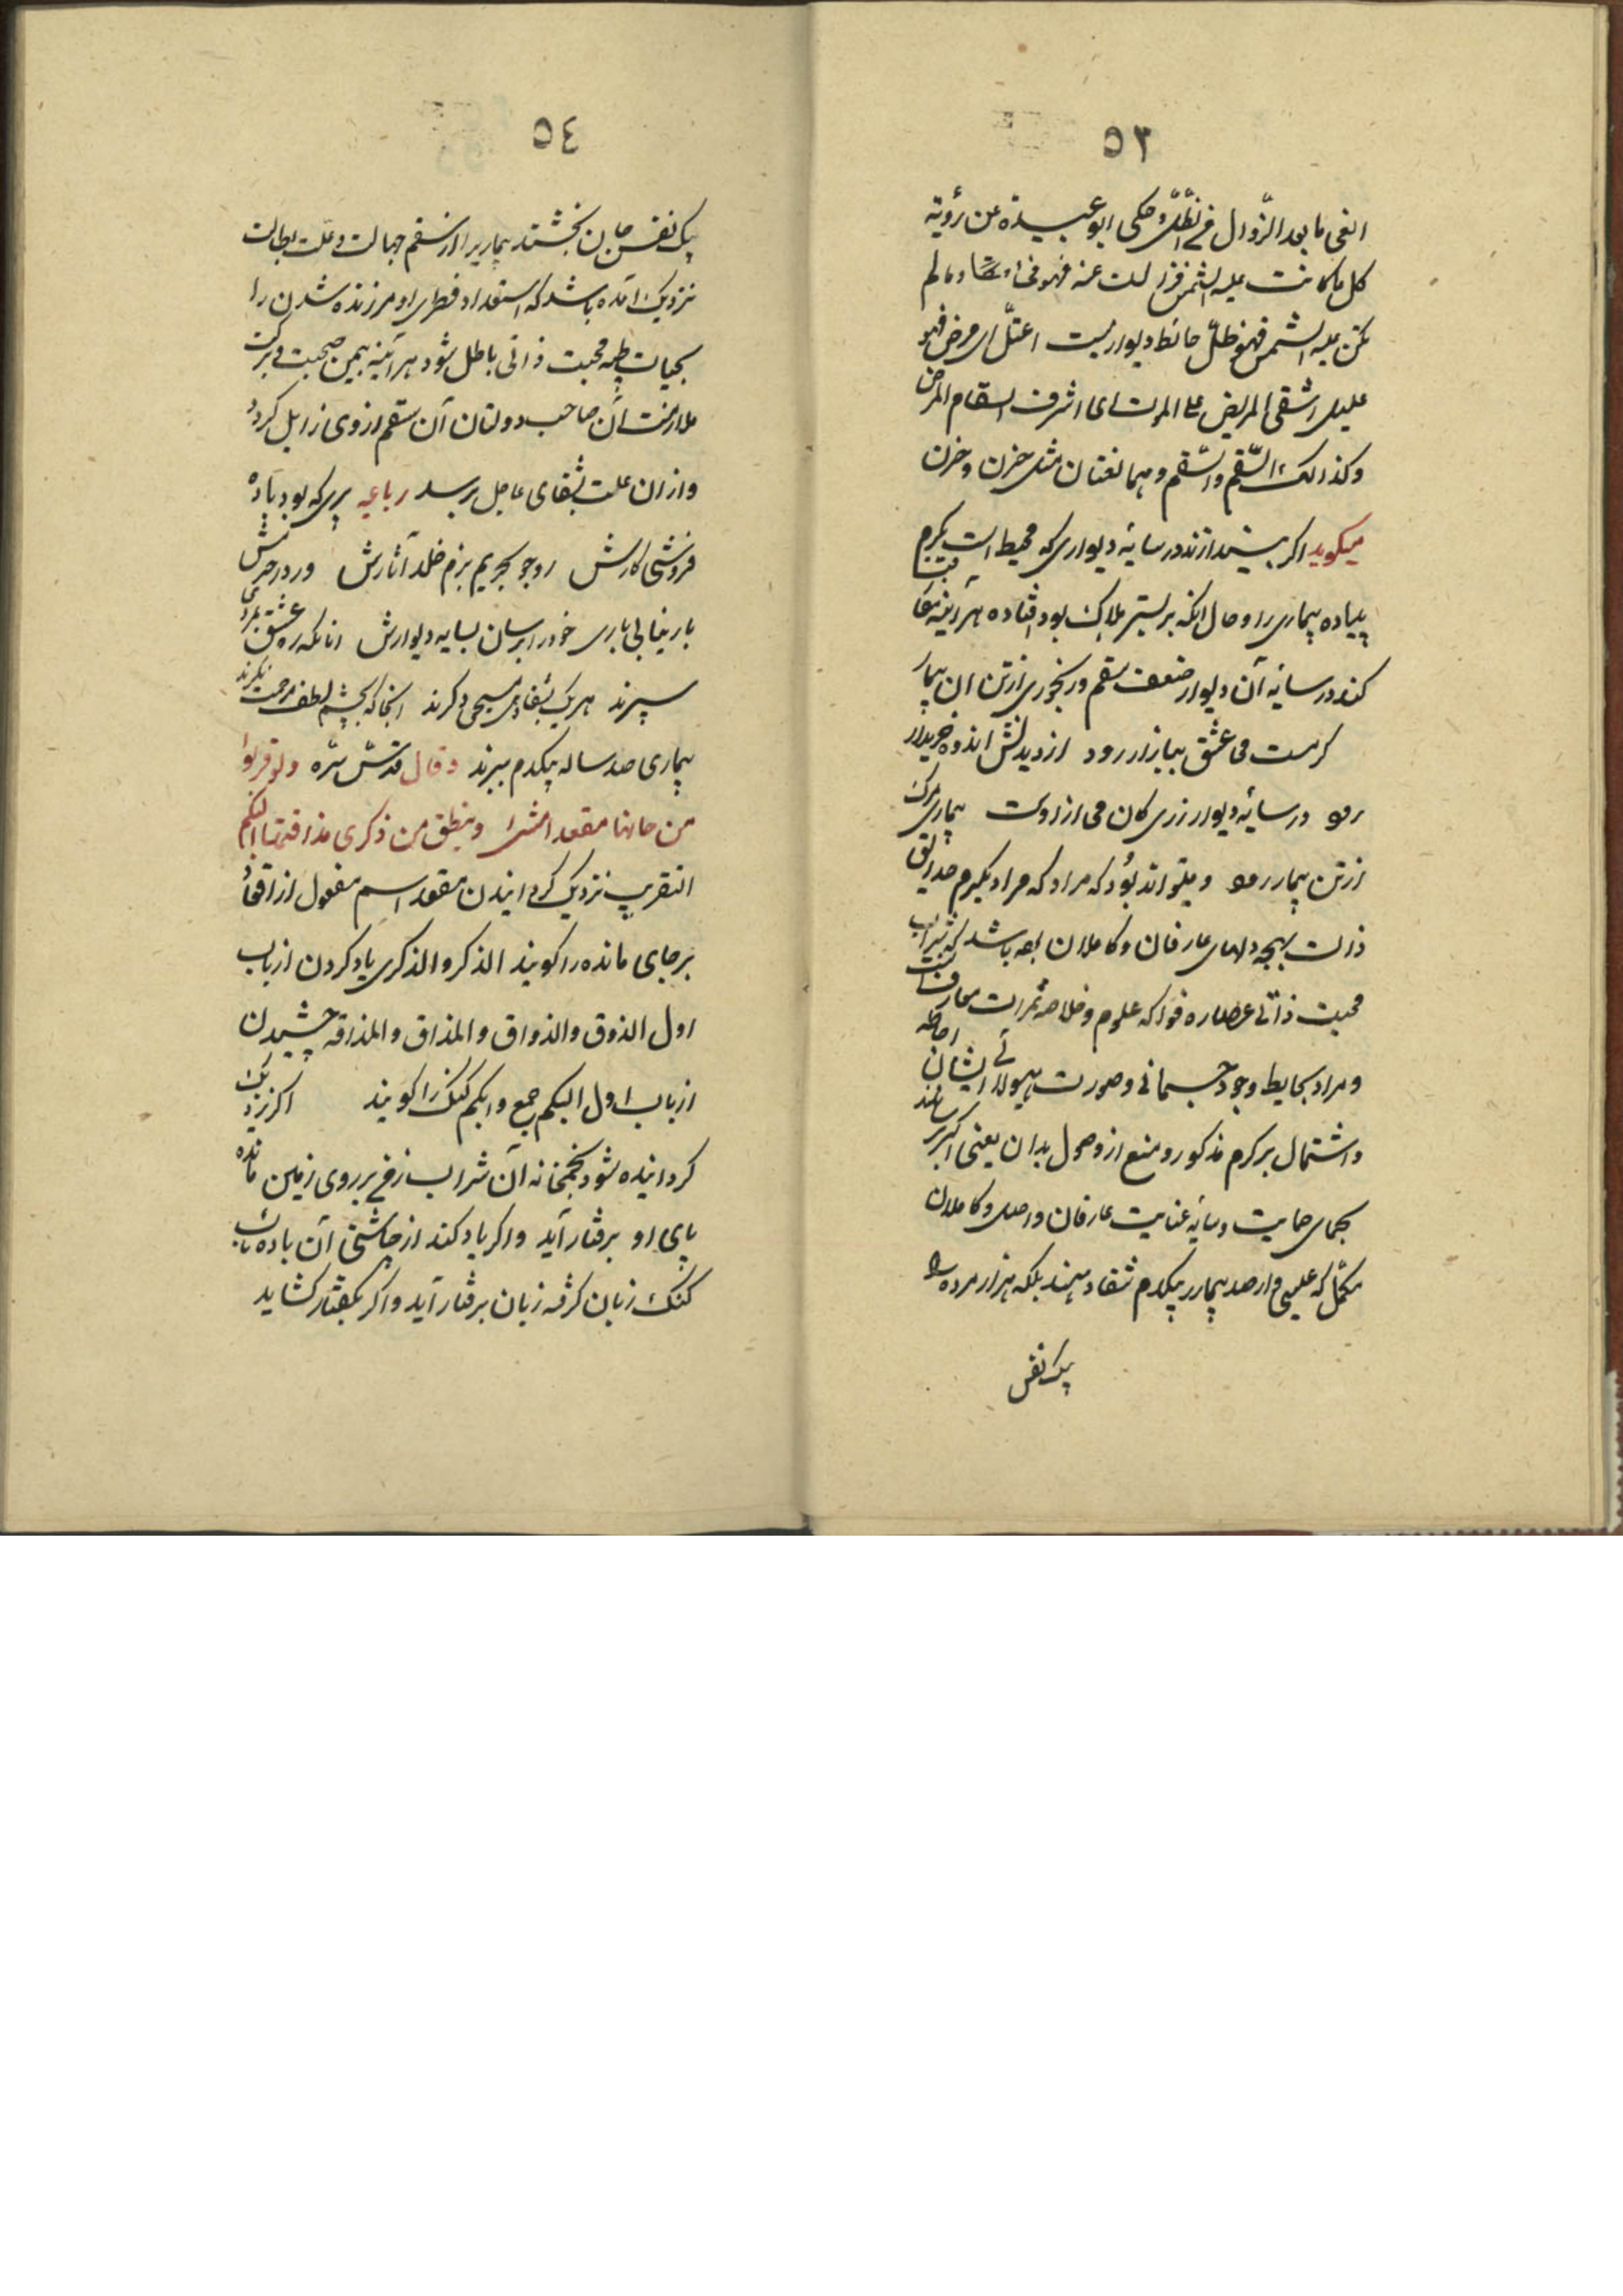 ٥٣
الفی ما بعد الزّوال فی الظّلّ و حکی ابو عبیده عن رؤیة
کل ما کانت علیه الشمس فزالت عنه فهو فئ و ما لم
تکن علیه الشمس فهو ظلّ حائط دیوار نیست اعتلّ ای مرض فهو
علیل اشفی المریض علی الموت ای اشرف السقام المرض
و کذالک السَّقَم والسُّقم و هما لغتان مثل حزن و حزن
میکوید اکر بیندازند در سایهٔ دیواری که محیط است بکرم
پیاده بیماری را و حال آنکه بر بستر هلاک بود افتاده هر آینه مفارقت
کند در سایه آن دیوار ضعف سقم و رنجوری از تن آن بیمار
کر مست می عشق ببازار رود از دیدنش اندوه خریدار
رود در سایهٔ دیوار رزی کان می ازوست بیماری مرک
از تن بیمار رود و میتواند بُود که مراد که مراد بکرم حدایق
ذات بهجه دلهای عارفان و کاملان بوه باشد که شراب
محبت ذاتی عصاره فواکه علوم و خلاصه ثمرات معارف آنست
و مراد بحایط وجود جسمانی و صورت هیولائی ایشان احاطه
و اشتمال بر کرم مذکور و منع از وصول بدان یعنی اکر رسانند
بحمای حمایت و سایهٔ عنایت عارفان واصل و کاملان
مکمّل که عیسی وار صد بیمار بیکدم شفا دهند بلکه هزار مرده را
بیک نفس
٥٤
بیک نفس جان بخشند بیماریرا کز سقم جهالت و علت بطالت
نزدیک آمده باشد که استعداد فطری او مر زنده شدن را
بحیات طیبه محبت ذاتی باطل شود هر آینه بیمن صحبت و برکت
ملازمت آن صاحب دولتان آن سقم از وی زایل کردد
و از ان علت بشفای عاجل برسد رباعیه پیری که بود باده
فروشی کارش رو جو بحریم بزم خلد آثارش ور در حرمش
بار نیابی باری خود را برسان بسایه دیوارش انانکه ره عشق بمردی
سپرند هریک بشفا دهی مسیحی دکرند انجا که بچشم لطف و مرحمت نکرند
بیماری صد ساله بیکدم ببرند و قال قدّس سّره ولو قربوا
من حانها مقعدا مشی وینطق من ذکری مذاقتها البکم
التقریب نزدیک کردانیدن مقعد اسم مفعول از اقعاد
بر جای مانده را کویند الذکر والذکری یاد کردن از باب
اول الذوق والذواق والمذاق والمذاقه چشیدن
از باب اول البکم جمع وابکم کنک را کویند اکر نزدیک
کردانیده شود بخمخانه آن شراب زفی بر روی زمین مانده
پای او برفتار آید و اکر یاد کند از چاشنی آن باده ناب
کنک زبان کرفته زبان برفتار آید و اکر بکفتار کشاید